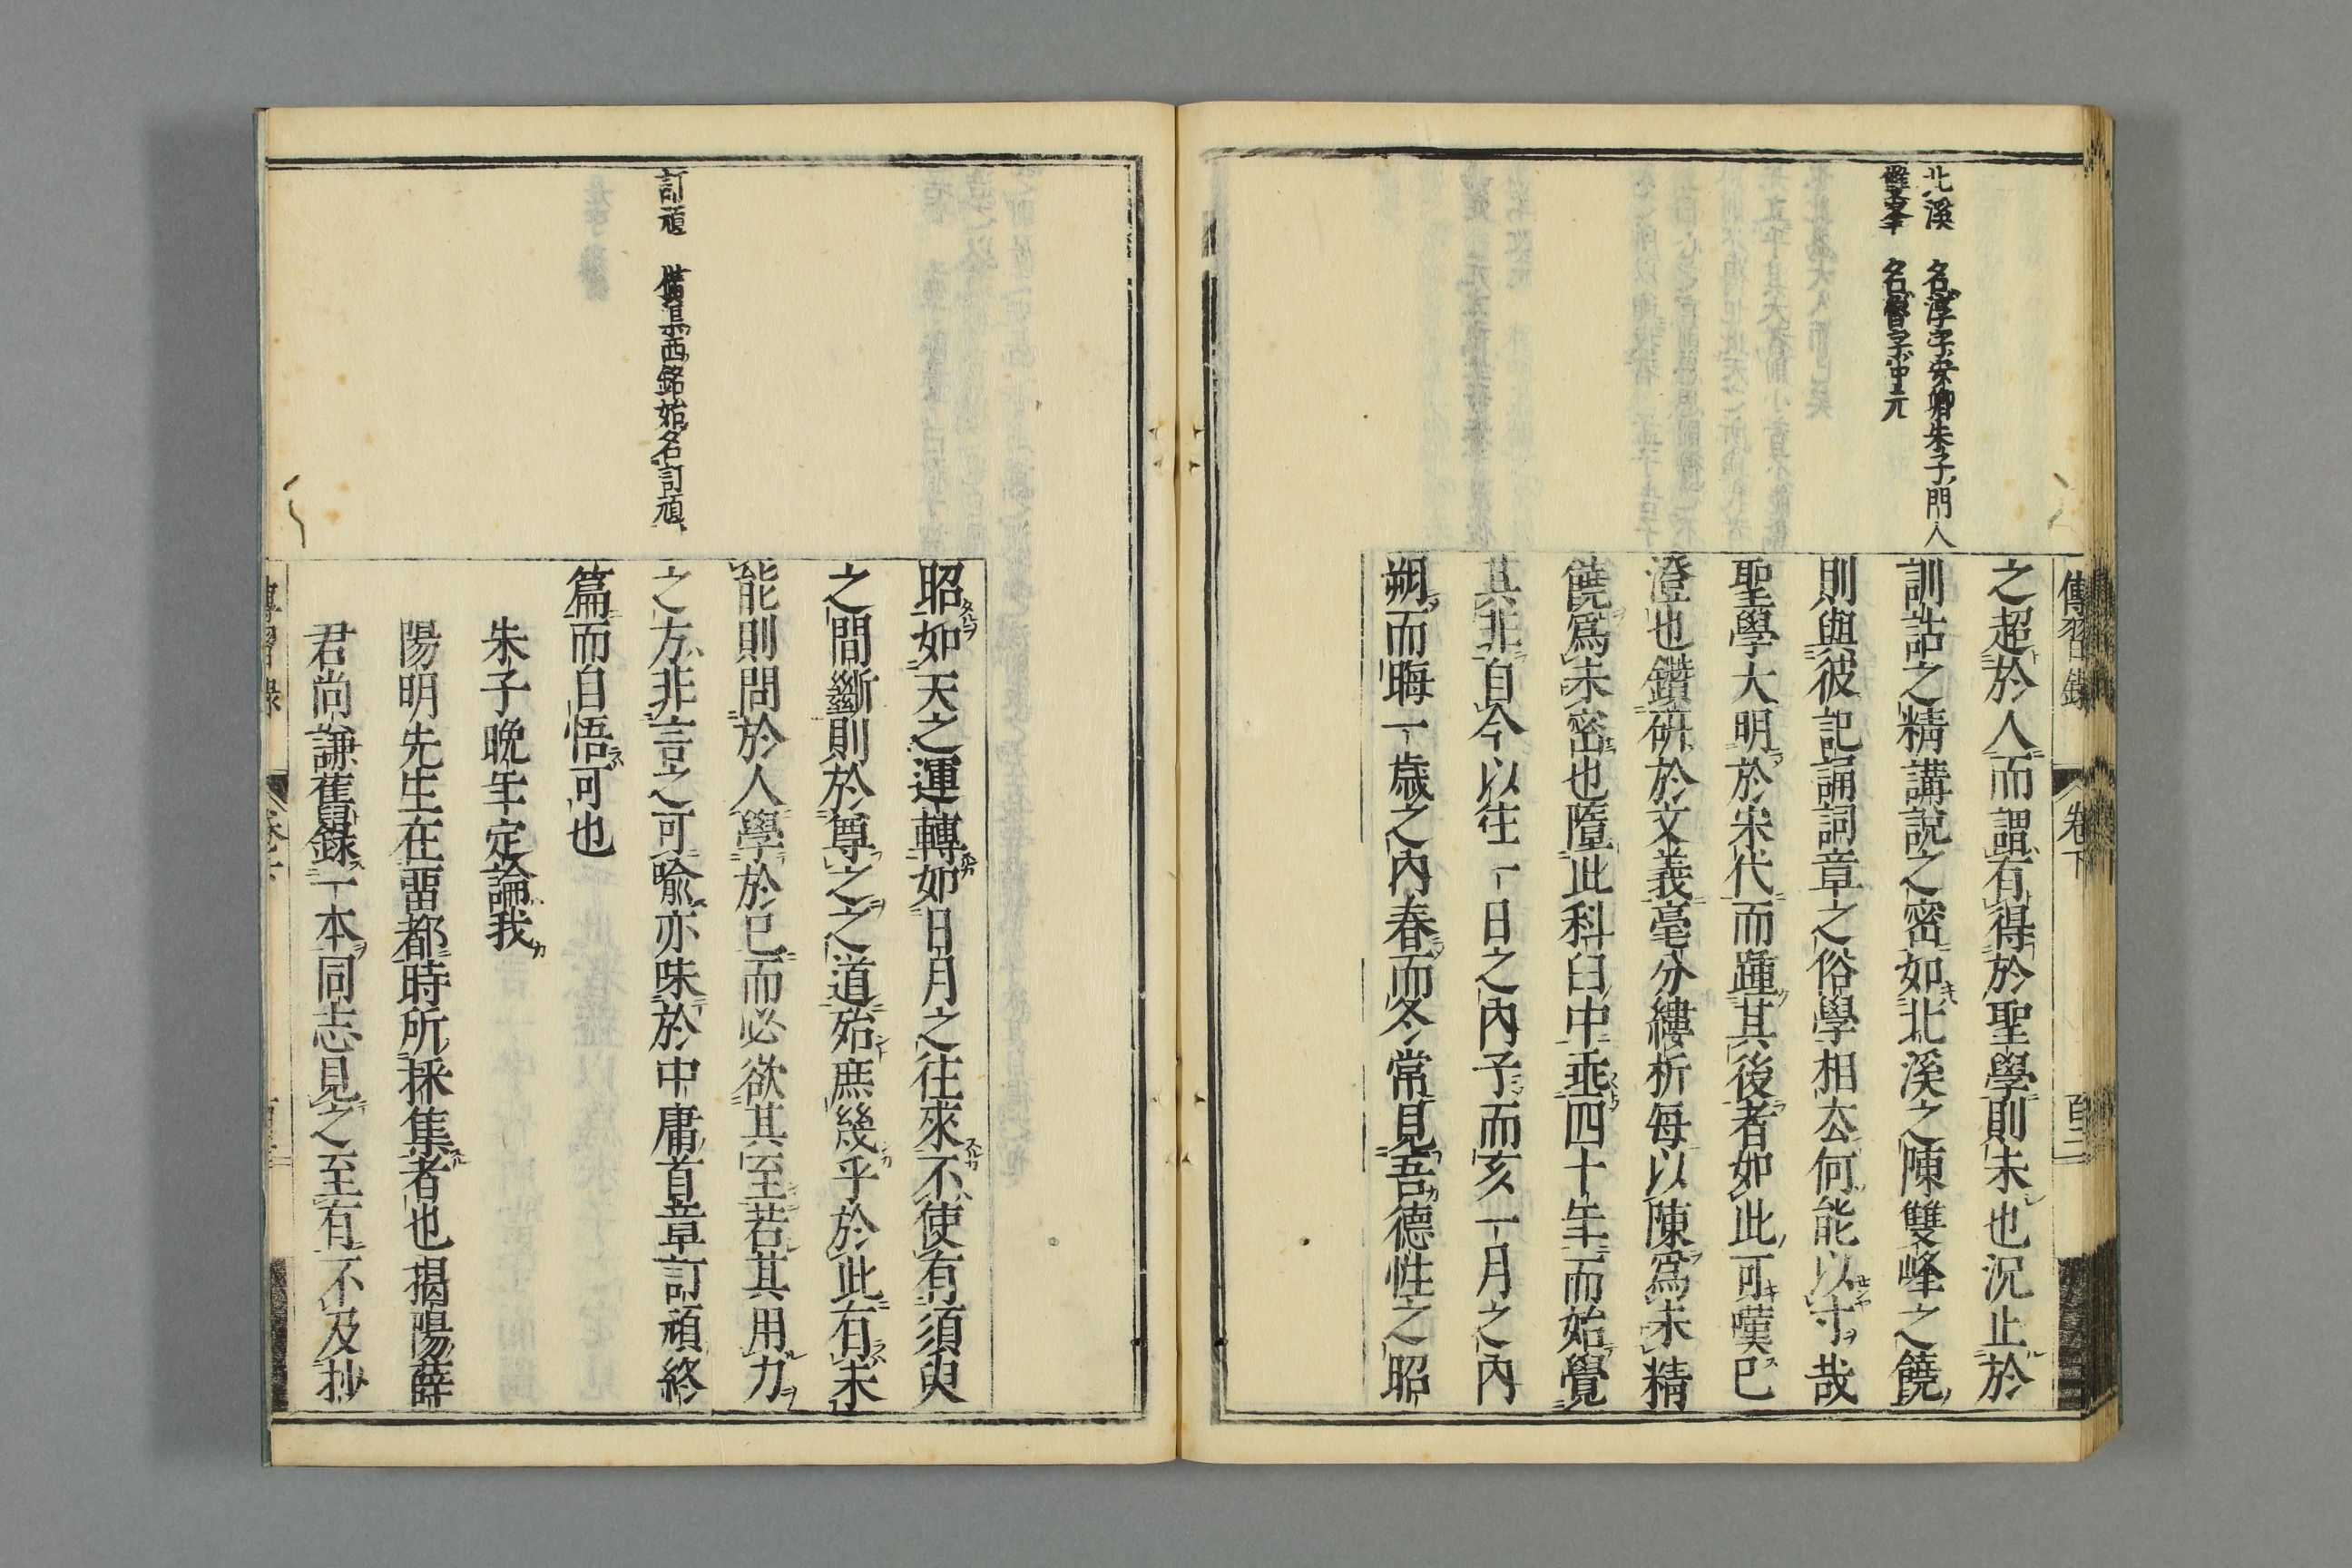 傳習錄
卷下
百二
北溪 名淳字安卿朱子門人
雙峯 名魯字仲元
之超於人而謂有得於聖學則未也況止於
訓詁之精講說之密如北溪之陳雙峰之饒
則與彼記誦詞章之俗學相去何能以寸哉
聖學大明於宋代而踵其後者如此可嘆已
澄也鑽硏於文義毫分縷析每以陳爲未精
饒爲未密也墮此科臼中垂四十年而始覺
其非自今以往一日之內子而亥一月之內
朔而晦一歲之內春而冬常見吾德性之昭
訂頑 橫渠西銘始名訂頑
昭如天之運轉如日月之往來不使有須臾
之間斷則於尊之之道殆庶幾乎於此有未
能則問於人學於已而必欲其至若其用力
之方非言之可喩亦味於中庸首章訂頑終
篇而自悟可也
朱子晚年定論我
陽明先生在畱都時所採集者也揭陽薛
君尚謙舊錄一本同志見之至有不及抄